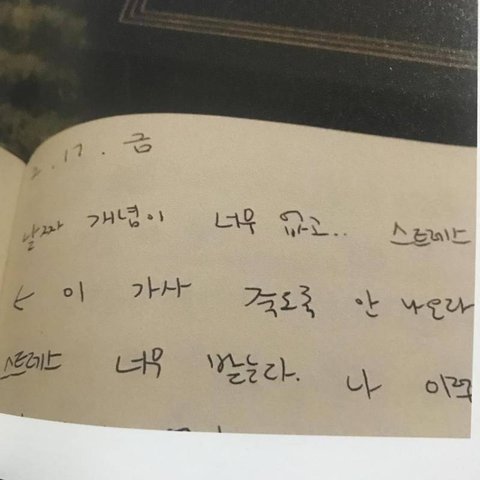 2.17.금
날짜 개념이 너무 없고.. 스트레스
이 가사 죽도록 안 나오라
스트레스 너무 받는다. 나 이쪽